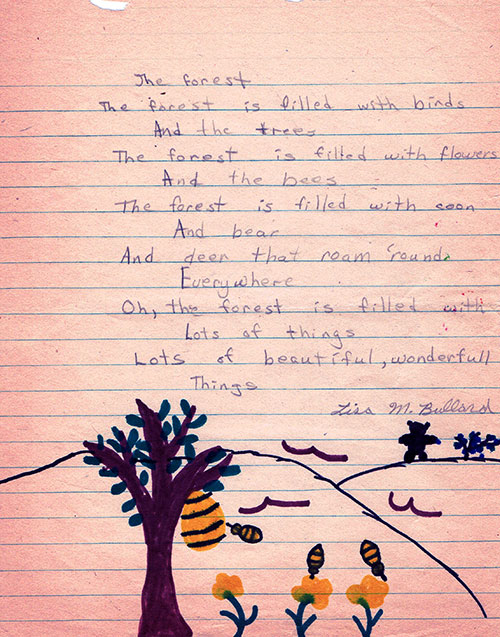 The forest
The forest is filled with birds
And the trees
The forest is filled with flowers
And the bees
The forest is filled with coon
And bear
And deer that roam 'round
Everywhere
Oh, the forest is filled with
Lots of things
Lots of beautiful, wonderfull
Things
Lisa M. Bullard